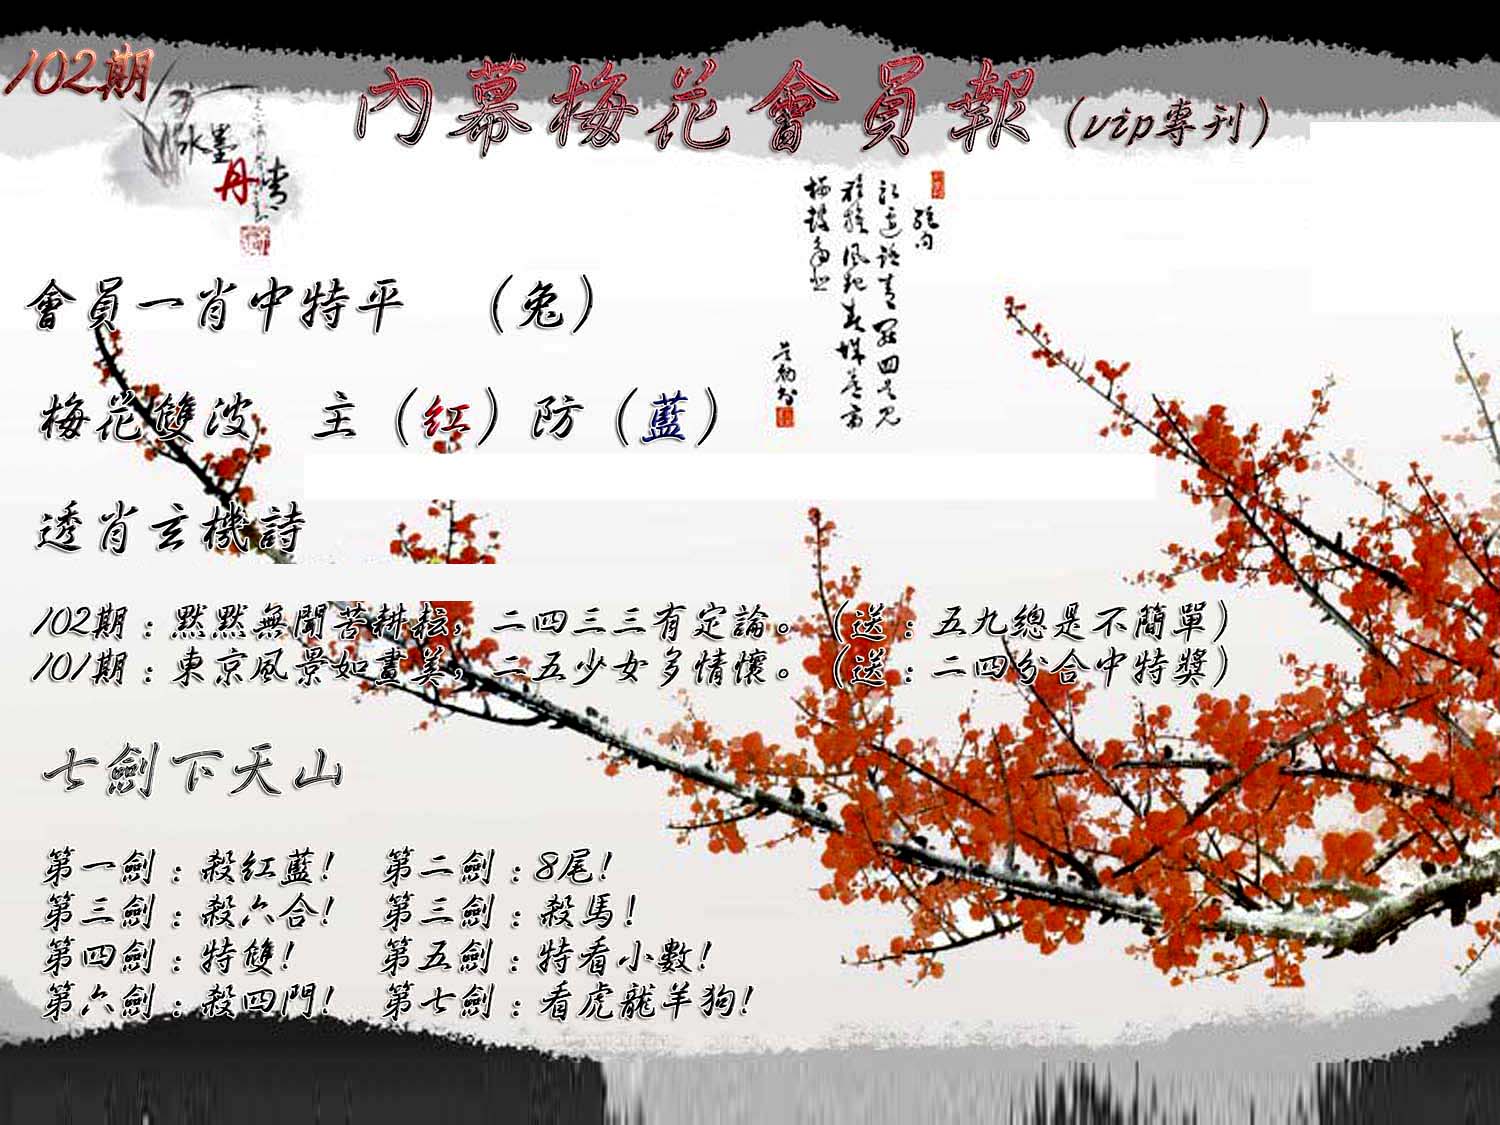 102期
內幕梅花會員報（vip專刊）
水墨
丹青
絕句
會員一肖中特平　（兔）
梅花雙波　主（紅）防（藍）
透肖玄機詩
102期：默默無聞苦耕耘，二四三三有定論。（送：五九總是不簡單）
101期：東京風景如畫美，二五少女多情懷。（送：二四分合中特獎）
七劍下天山
第一劍：殺紅藍！　第二劍：8尾！
第三劍：殺六合！　第三劍：殺馬！
第四劍：特雙！　第五劍：特看小數！
第六劍：殺四門！　第七劍：看虎龍羊狗！